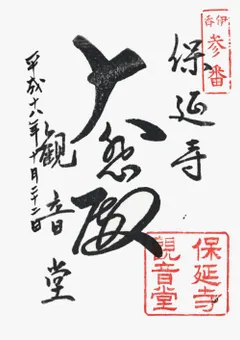 伊呂
参番
保延寺
大悲殿
観音堂
平成十八年十月二十二日
保延寺
観音堂